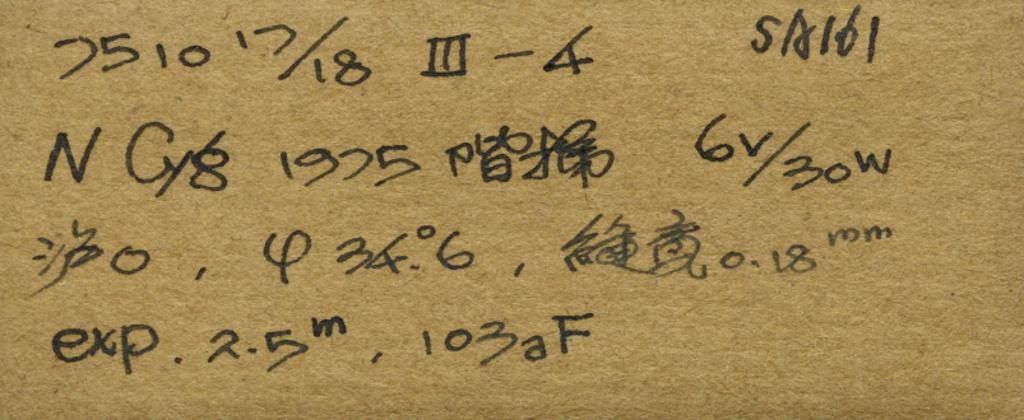 7510 17/18 III-4 SA161
N Cyg 1975 階掃 6V/30W
沪0, φ 34.°6, 縫寬 0.18mm
exp. 2.5m, 103aF